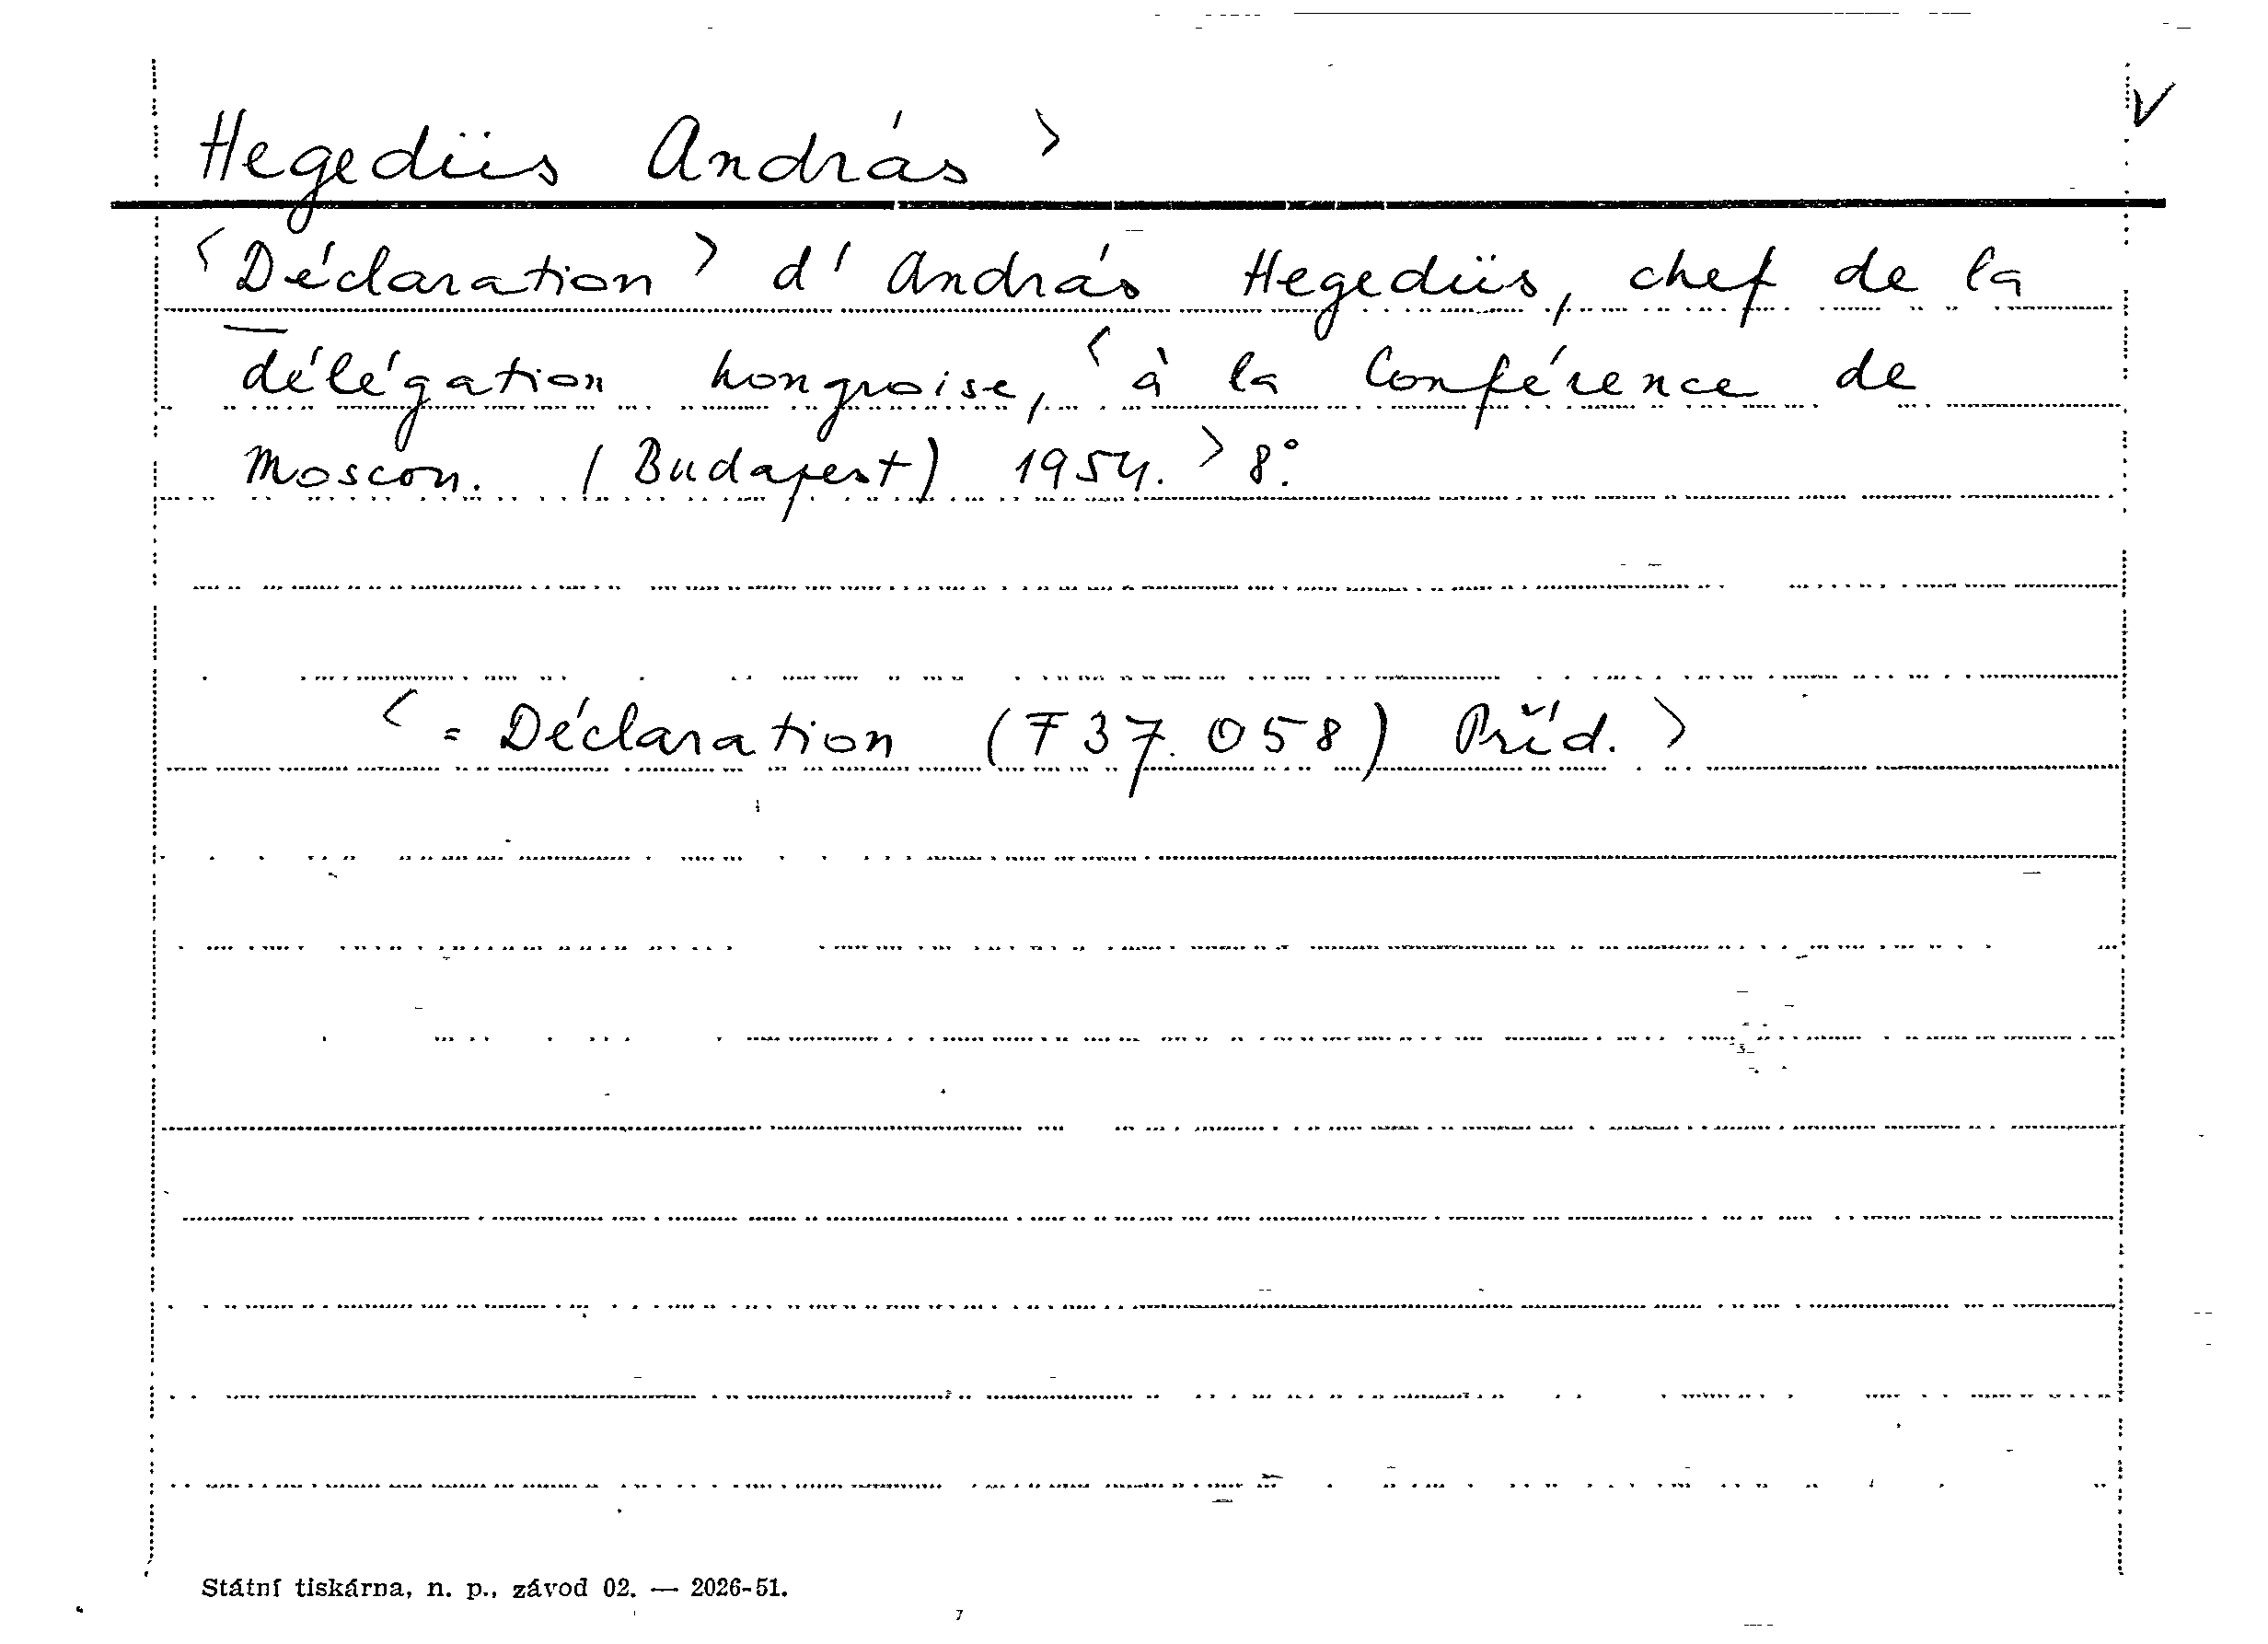 V
Hegedüs András >
<Déclaration> d'András Hegedüs, chef de la
délégation hongroise, <à la Conférence de
Moscou. (Budapest) 1954. > 8°.
< = Déclaration (F 37.058) Příd. >
Státní tiskárna, n. p., závod 02. — 2026-51.